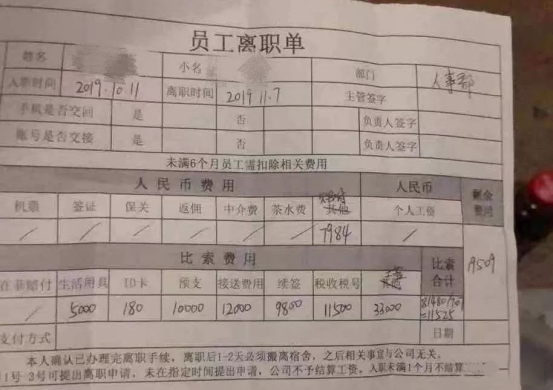 员工离职单
姓名 小名 部门 人事部
入职时间 2019.10.11 离职时间 2019 11.7 主管签字
手机是否交回 是 否 负责人签字
账号是否交接 是 否 负责人签字
未满6个月员工需扣除相关费用
人民币费用 人民币 剩余费用
机票 签证 保关 返佣 中介费 茶水费 其他 个人工资
/ / / / / / 7984 / 19509
比索费用 比索合计
在菲赔付 生活用具 ID卡 预支 接送费用 续签 税收税号
/ 5000 180 10000 12000 9800 11500 33000 81480/7.07=11525
支付方式 日期
本人确认已办理完离职手续，离职后1-2天必须搬离宿舍，之后相关事宜与公司无关。
1号-3号可提出离职申请，未在指定时间提出申请，公司不予结算工资，入职未满1个月不结算